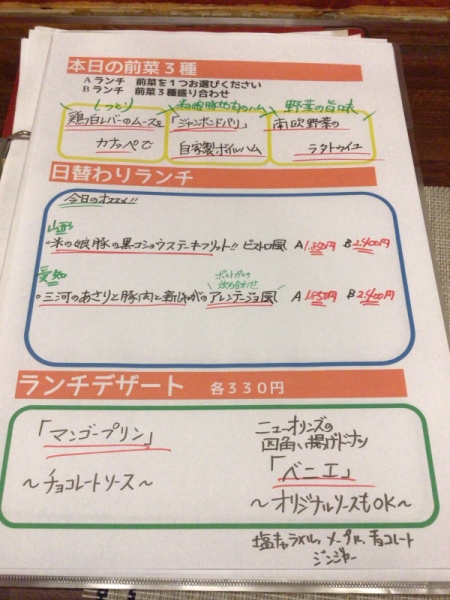 本日の前菜３種
Ａランチ 前菜を１つお選びください
Ｂランチ 前菜３種盛り合わせ
しっとり 米の娘豚もも肉のハム 野菜の旨味
鶏白レバーのムースを 「ジャンボンドパリ」 南欧野菜の
カナッペで 自家製ボイルハム ラタトゥイユ
日替わりランチ
今日のオススメ!!
山形
・米の娘豚の黒コショウステーキフリット!! ビストロ風 A B 2,400円
愛知
ポルトガルの
炊き合わせ
・三河のあさりと豚肉と新じゃがのアレンテージョ風 A 1,850円 B 2,400円
ランチデザート 各３３０円
「マンゴープリン」
〜チョコレートソース〜
ニューオリンズの
四角い揚げドーナツ
「ベニエ」
〜オリジナルソースもOK〜
塩キャラメル、メープル、チョコレート
ジンジャー